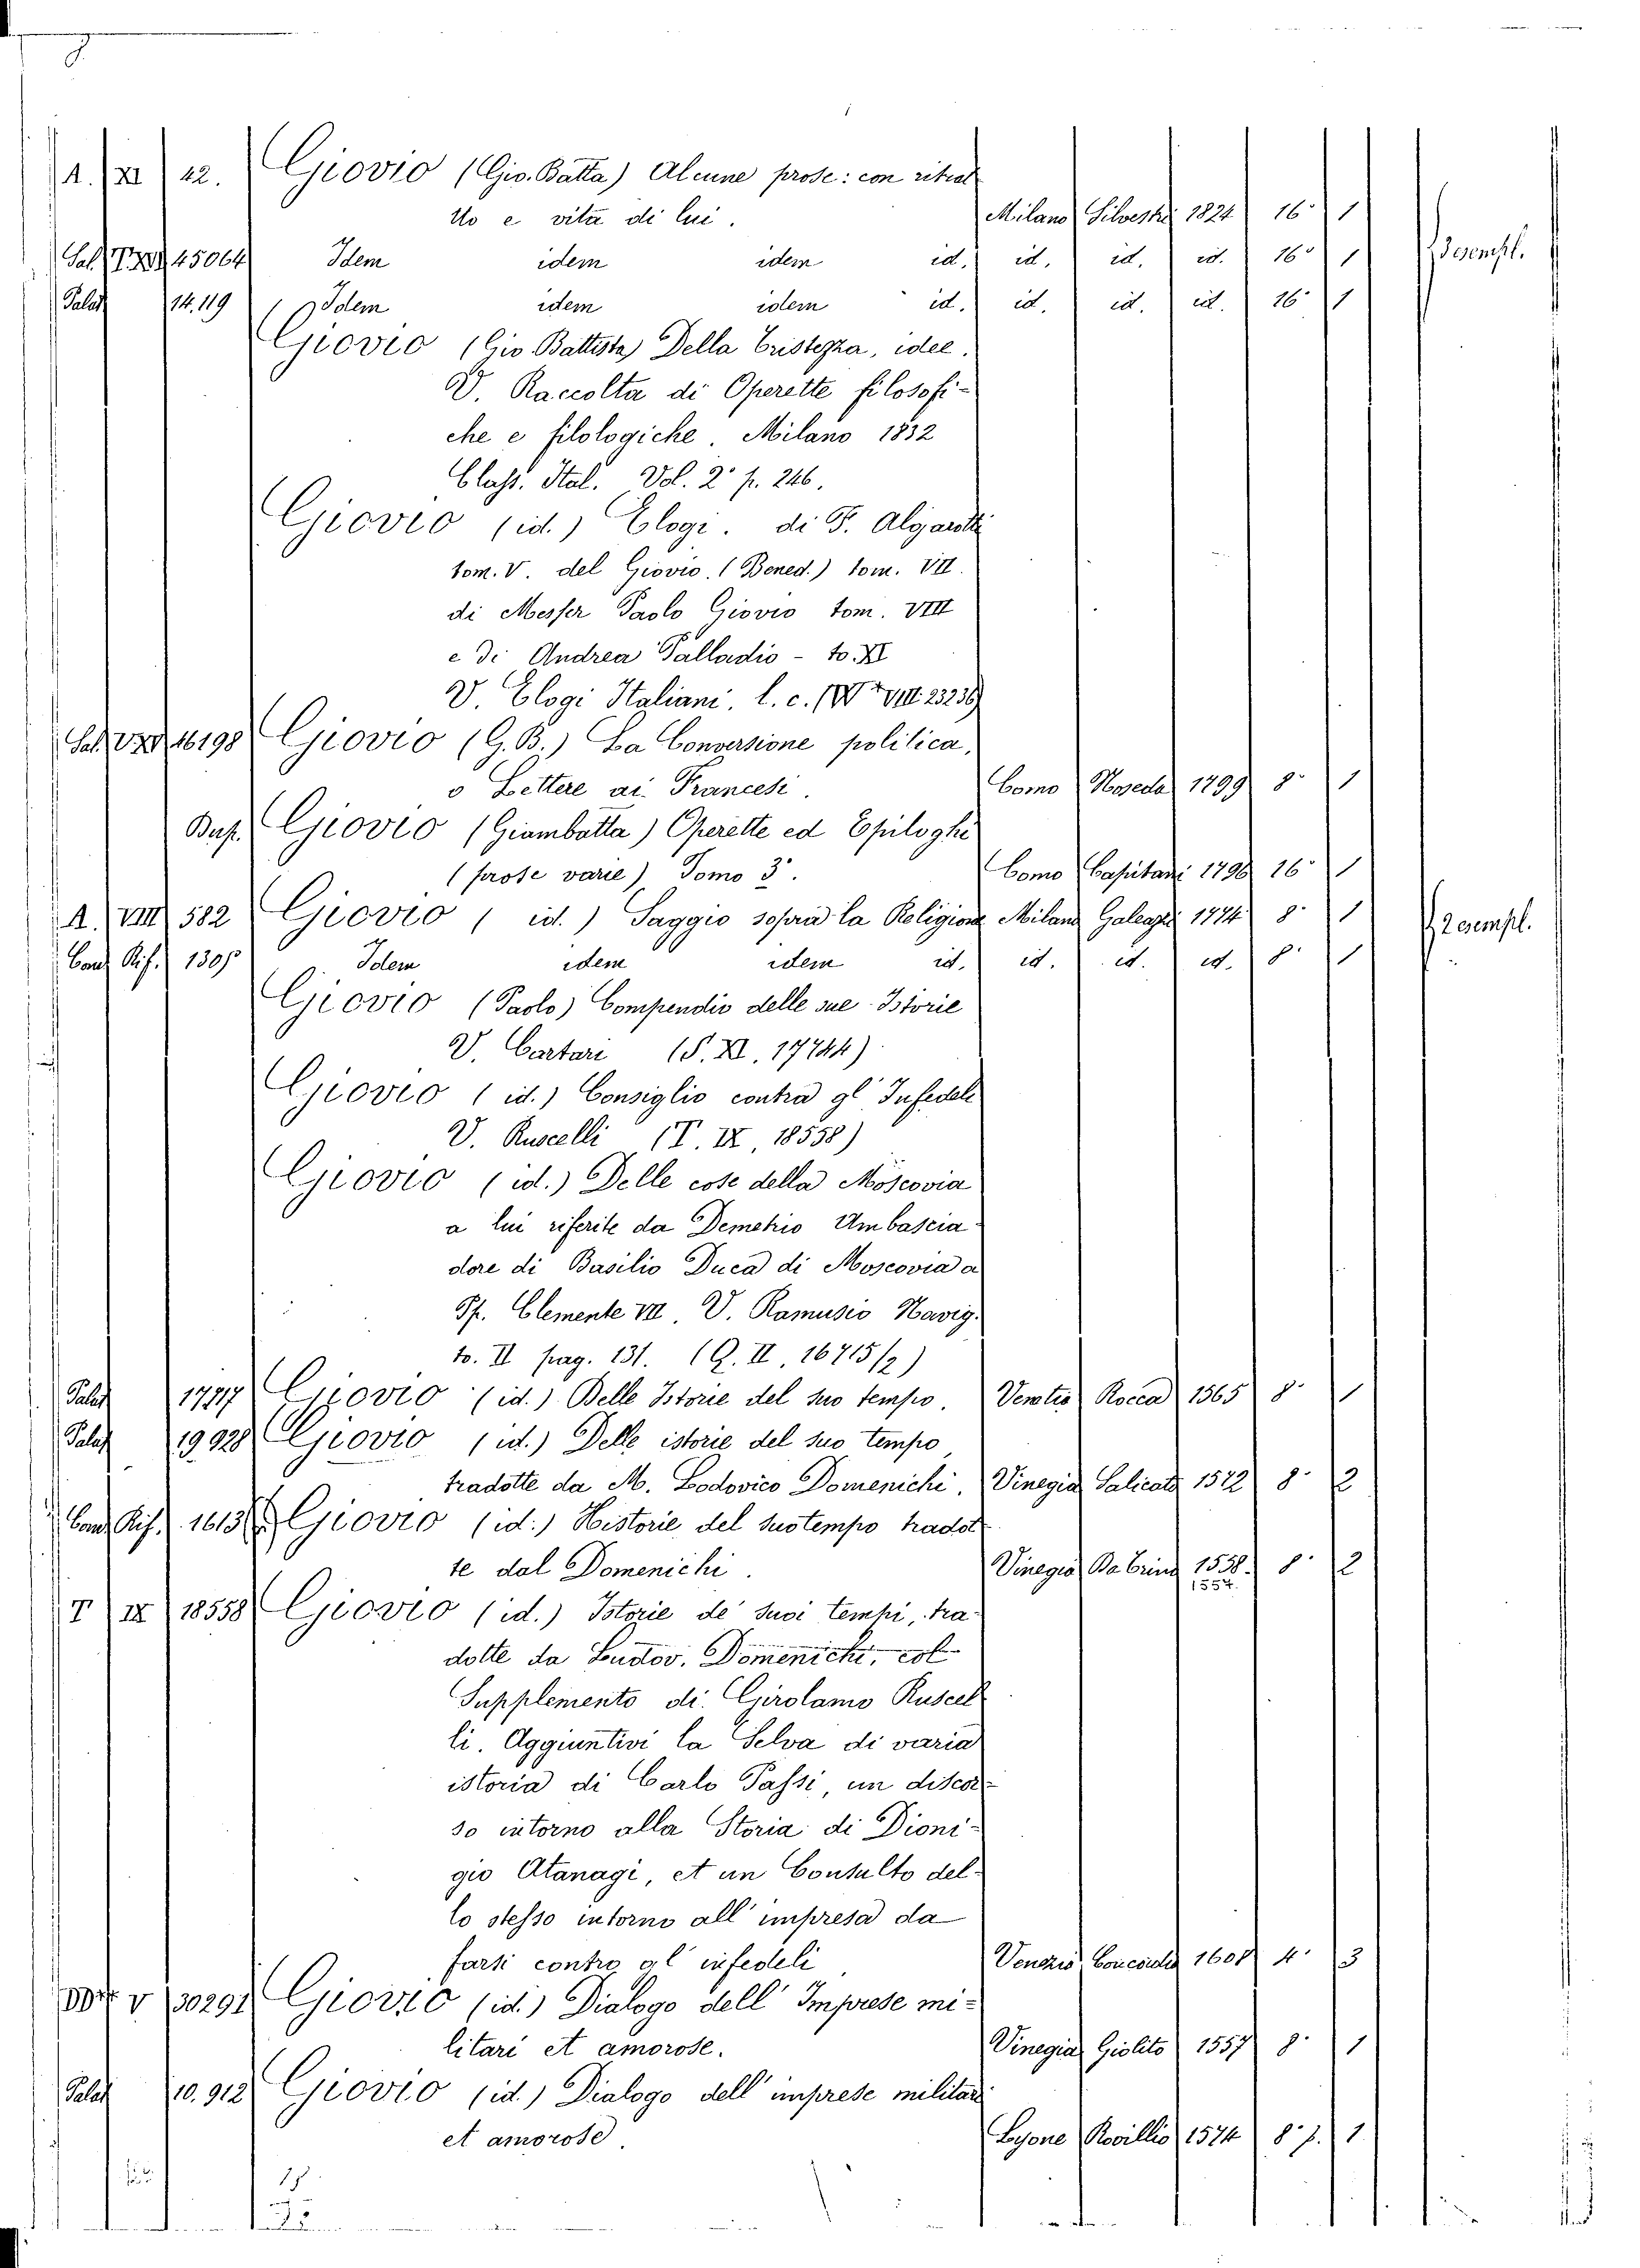 A. XI 42. Giovio (Gio. Batta) Alcune prose: con ritrat
to e vita di lui. Milano Silvestri 1824 16° 1
Sal. T. XVI 45064 Idem idem idem id. id. id. id. 16° 1
Palat 14.119 Idem idem idem id. id. id. id. 16° 1
Giovio (Gio Battista) Della Tristezza, idee.
V. Raccolta di Operette filosofi-
che e filologiche. Milano 1832
Class. Ital. Vol. 2° p. 246.
Giovio (id.) Elogi. di F. Algarotti
tom. V. del Giovio. (Bened.) tom. VII.
di Messer Paolo Giovio tom. VIII
e di Andrea Palladio - to. XI
V. Elogi Italiani. l. c. VIII. 23236)
Sal. 16198 Giovio (G. B.) La Conversione politica,
o Lettere ai Francesi. Como Noseda 1799 8° 1
Bus. Giovio (Giambatta) Operette ed Epiloghi
(prose varie) Tomo 3°. Como Capitani 1796 16° 1
A. VIII 582 Giovio (id.) Saggio sopra la Religione Milano Galeazzi 1774 8° 1 2 esempl.
Cons Rif. 1305 Idem idem idem id. id. id. id. 8° 1
Giovio (Paolo) Compendio delle sue Istorie
V. Cartari (S. XI. 17744)
Giovio (id.) Consiglio contra gl' Infedeli
V. Ruscelli (T. IX. 18558)
Giovio (id.) Delle cose della Moscovia
a lui riferite da Demetrio Ambascia
dore di Basilio Duca di Moscovia a
Pp. Clemente VII. V. Ramusio Navig.
to. II pag. 131. (Q. II. 16715/2)
Palat 17717 Giovio (id.) Delle Istorie del suo tempo. Venetia Rocca 1565 8° 1
Palat 19928 Giovio (id.) Delle istorie del suo tempo
tradotte da M. Lodovico Domenichi. Vinegia Salicato 1572 8° 2
Cons Rif. 1613 Giovio (id.) Historie del suo tempo tradot
te dal Domenichi. Vinegia Da Trino 1558. 8° 2
1554.
T IX 18558 Giovio (id.) Istorie de' suoi tempi, tra-
dotte da Ludov. Domenichi, col
Supplemento di Girolamo Ruscel
li. Aggiuntivi la Selva di varia
istoria di Carlo Passi, un discor-
so intorno alla Storia di Dioni-
gio Atanagi, et un Consulto del-
lo stesso intorno all' impresa da
farsi contro gl' infedeli Venezia Concordia 1608 4° 3
V 30291 Giovio (id.) Dialogo dell' Imprese mi-
litari et amorose. Vinegia Giolito 1557 8° 1
Palat 10.912 Giovio (id.) Dialogo dell' imprese militari
et amorose. Lyone Rovillio 1574 8° p. 1